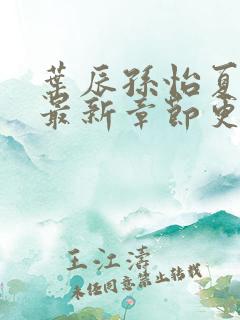 葉辰孫怡夏
最新章節更
王江濤
未经同意禁止转载